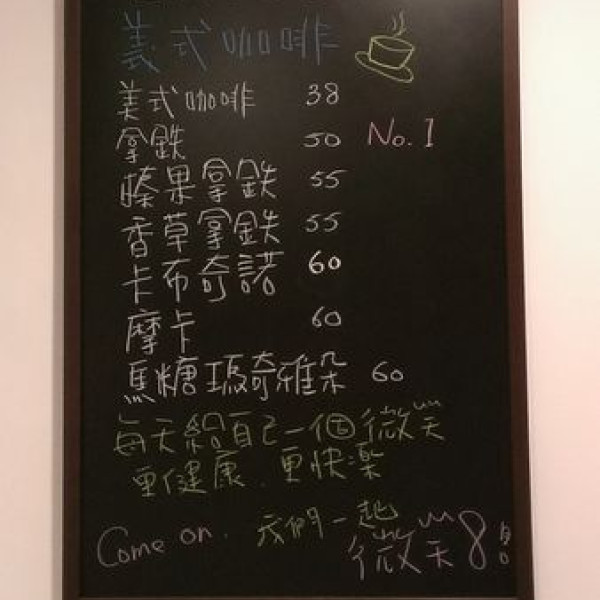 義式咖啡
美式咖啡 38
拿鉄 50 No.1
榛果拿鉄 55
香草拿鉄 55
卡布奇諾 60
摩卡 60
焦糖瑪奇雅朵 60
每天給自己一個微笑
更健康.更快樂
Come on. 我們一起
微笑8